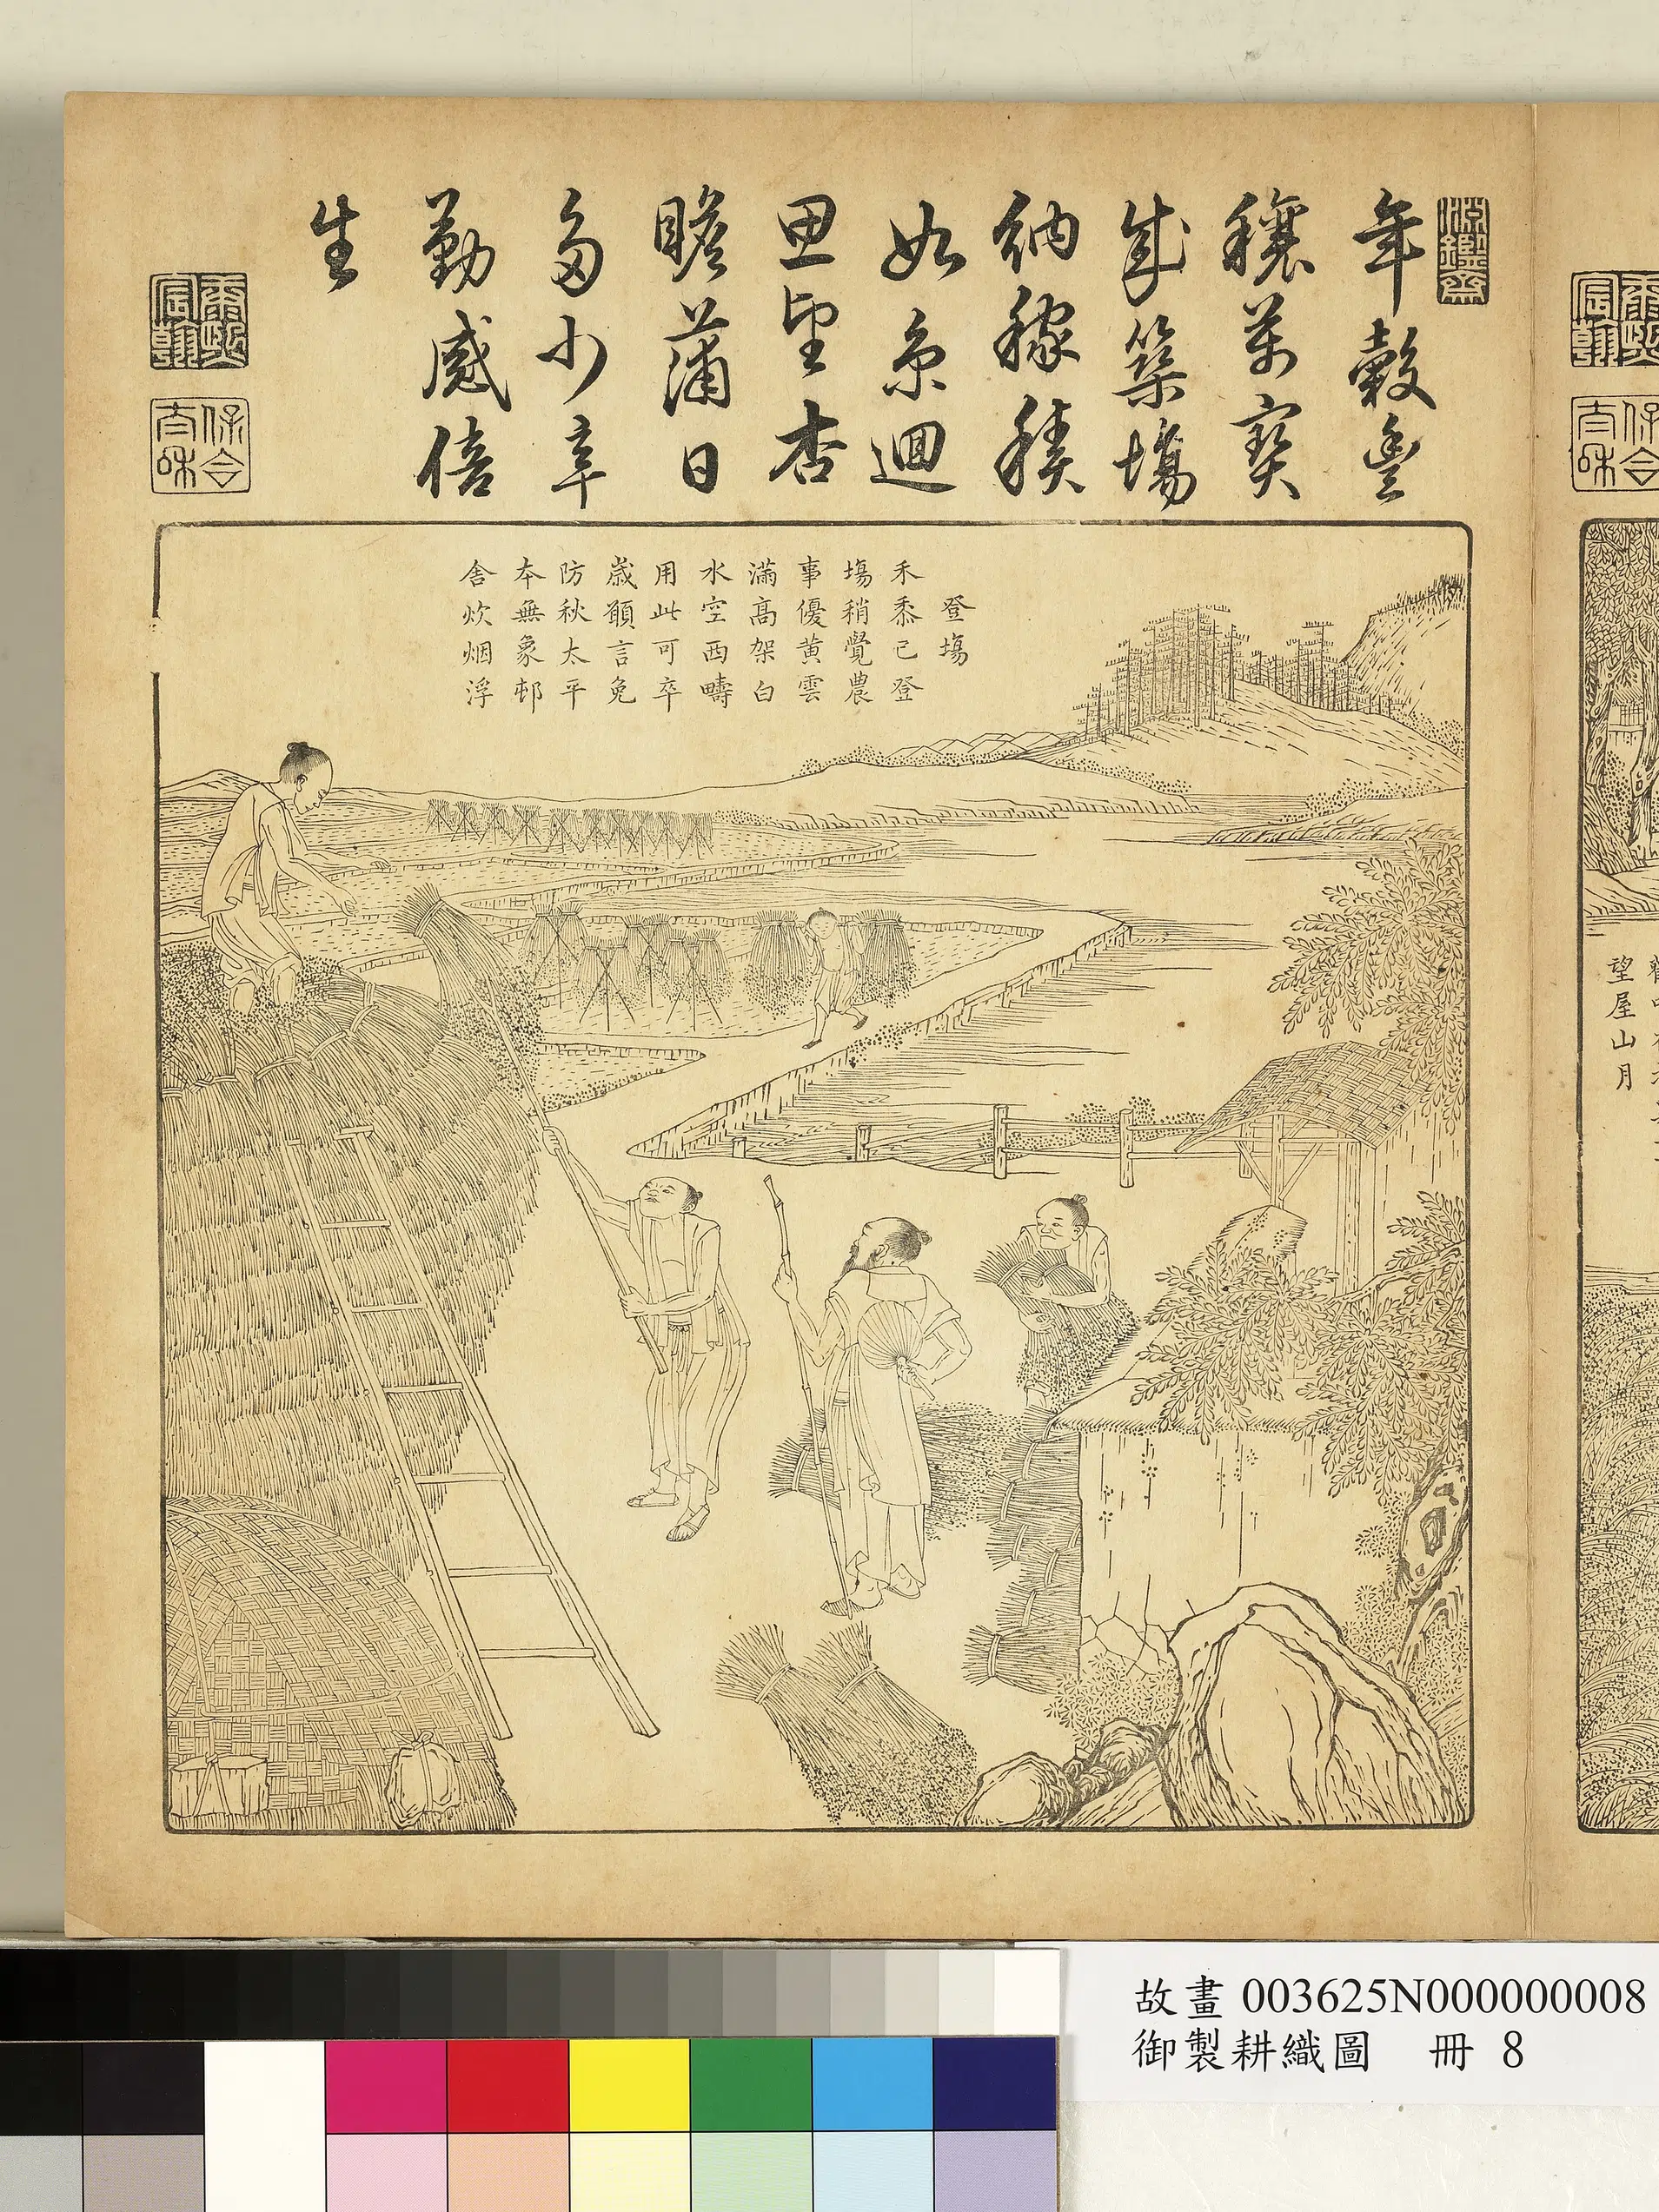 淵鑑齋
年穀豐
穰萬寶
成築塲
納稼積
如京迴
思望杏
瞻蒲日
多少辛
勤感倍
生
康熙宸翰
保合太和
登塲
禾黍已登
塲稍覺農
事優黃雲
滿高架白
水空西疇
用此可卒
歲願言免
防秋太平
本無象邨
舍炊烟浮
望屋山月
故畫 003625N000000008
御製耕織圖 冊 8